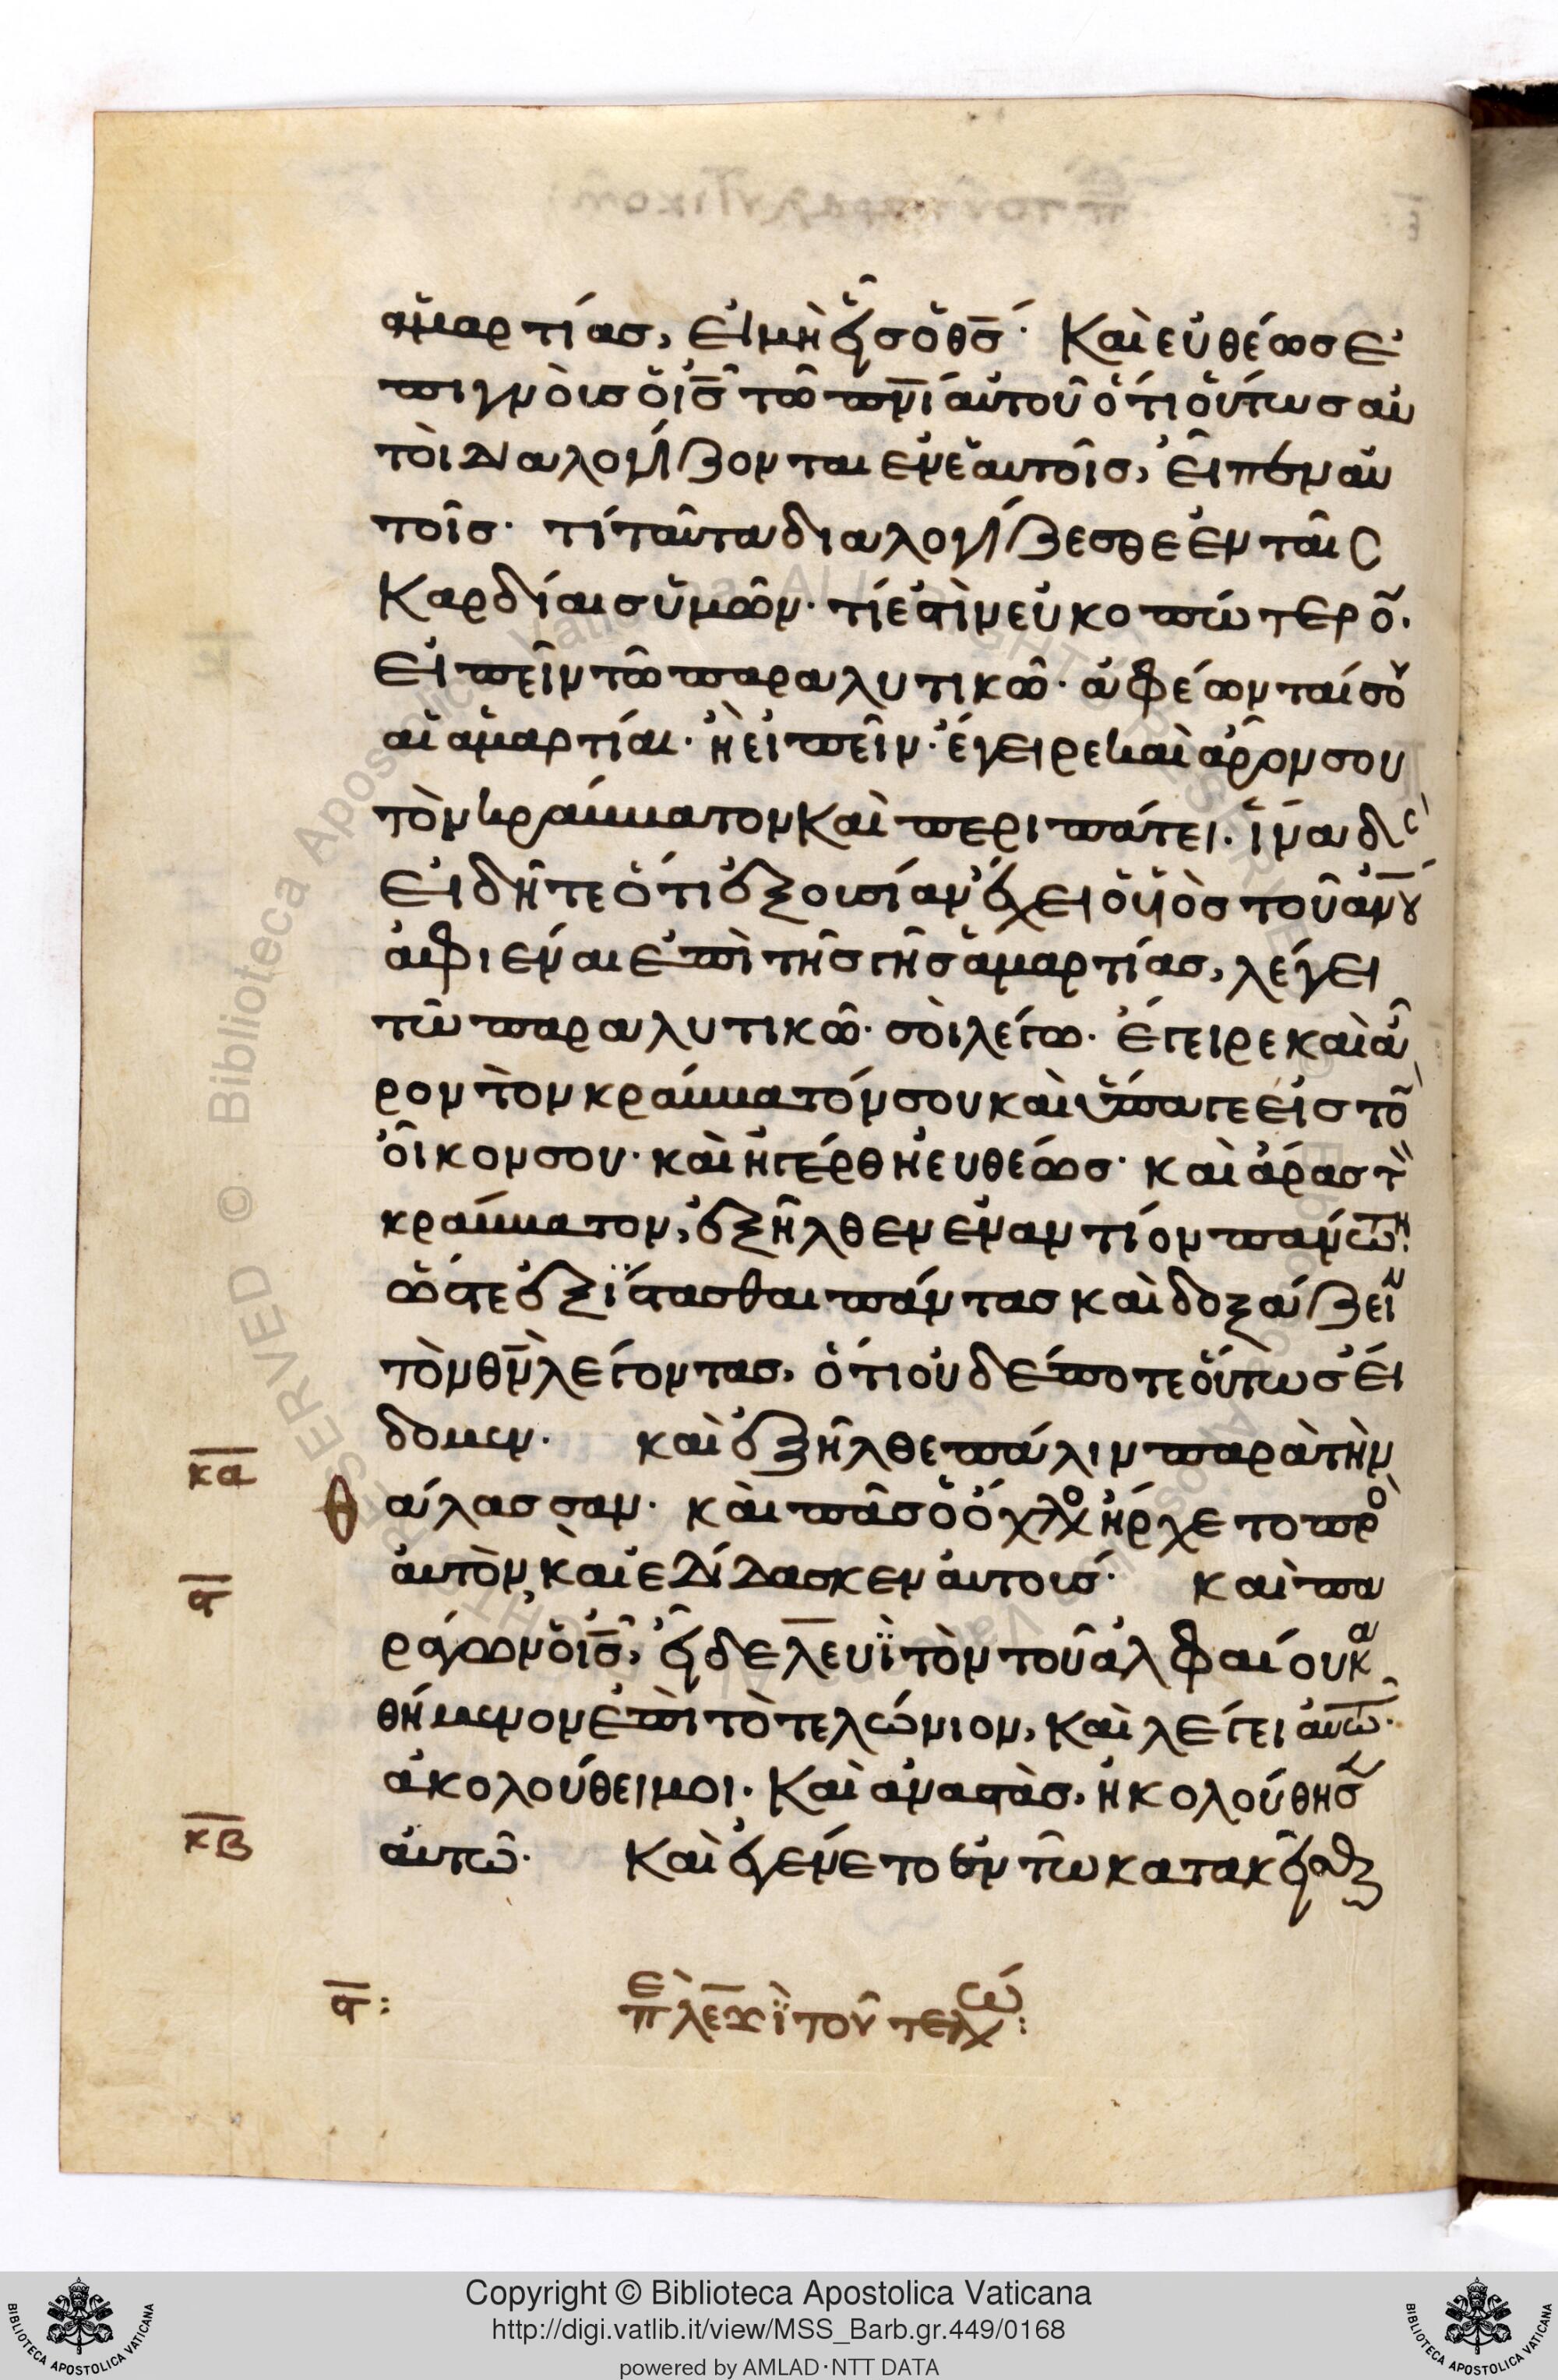 ἁμαρτίας, εἰ μὴ εἷς ὁ θς̅· Καὶ εὐθέως ἐ
πιγνοὺς ὁ ις̅ τῶ πνι̅ αὐτοῦ ὅτι οὕτως αὐ
τοὶ διαλογίζονται ἐν ἑαυτοῖς, εἶπεν αὐ
τοῖς· τί ταῦτα διαλογίζεσθε ἐν ταῖς
Καρδίαις ὑμῶν· τί ἐστὶν εὐκοπώτερο̅·
εἰπεῖν τῶ παραλυτικῶ· ἀφέωνταί σου
αἱ ἁμαρτίαι· ἢ εἰπεῖν· ἔγειρε καὶ ἆρον σου
τὸν κράββατον Καὶ περιπάτει· ἵνα δὲ
εἰδῆτε ὅτι ἐξουσίαν ἔχει ὁ υἱὸς τοῦ ανου̅
ἀφιέναι ἐπὶ τῆς γῆς ἁμαρτίας, λέγει
τῶ παραλυτικῶ· σοὶ λέγω· ἔγειρε καὶ ἆ
ρον τὸν κράββατόν σου καὶ ὕπαγε εἰς τὸ̅
οἶκον σου· καὶ ἠγέρθη εὐθέως· καὶ ἄρας τὸν
κράββατον, ἐξῆλθεν ἐναντίον πάντων·
ὥστε ἐξίστασθαι πάντας καὶ δοξάζειν
τὸν θν̅ λέγοντας, ὅτι οὐδέποτε οὕτως εἴ
δομεν· καὶ ἐξῆλθε πάλιν παρὰ τὴν
κα̅
θάλασσαν· καὶ πᾶς ὁ ὄχλος ἤρχετο πρὸς
αὐτὸν, καὶ ἐδίδασκεν αὐτούς· καὶ πα
ϛ̅
ράγων ὁ ις̅, εἶδε λευῒ τὸν τοῦ ἀλφαίου κα
θήμενον ἐπὶ τὸ τελώνιον, καὶ λέγει αὐτῶ·
ἀκολούθει μοι· Καὶ ἀναστὰς, ἠκολούθησεν
αὐτῶ· Καὶ ἐγένετο ἐν τῶ κατακεῖσθαι
κβ̅
ϛ̅: πε λευῒ τοῦ τελω:
Copyright © Biblioteca Apostolica Vaticana
http://digi.vatlib.it/view/MSS_Barb.gr.449/0168
powered by AMLAD·NTT DATA